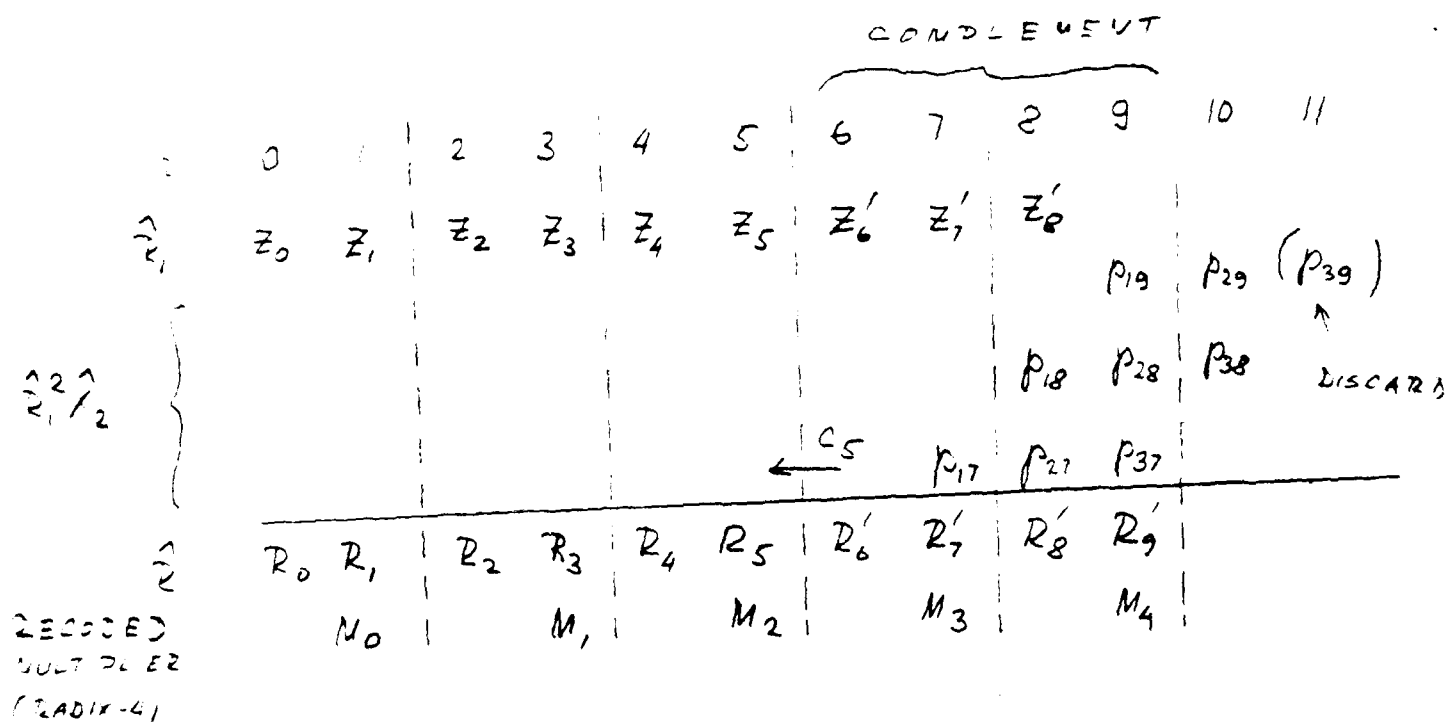 COMPLEMENT
0 1 2 3 4 5 6 7 8 9 10 11
Z0 Z1 Z2 Z3 Z4 Z5 Z6' Z7' Z8'
p19 p29 (p39)
p18 p28 p38 DISCARD
C5 p17 p27 p37
R0 R1 R2 R3 R4 R5 R6' R7' R8' R9'
M0 M1 M2 M3 M4
RECODED
MULTIPLIER
(RADIX-4)